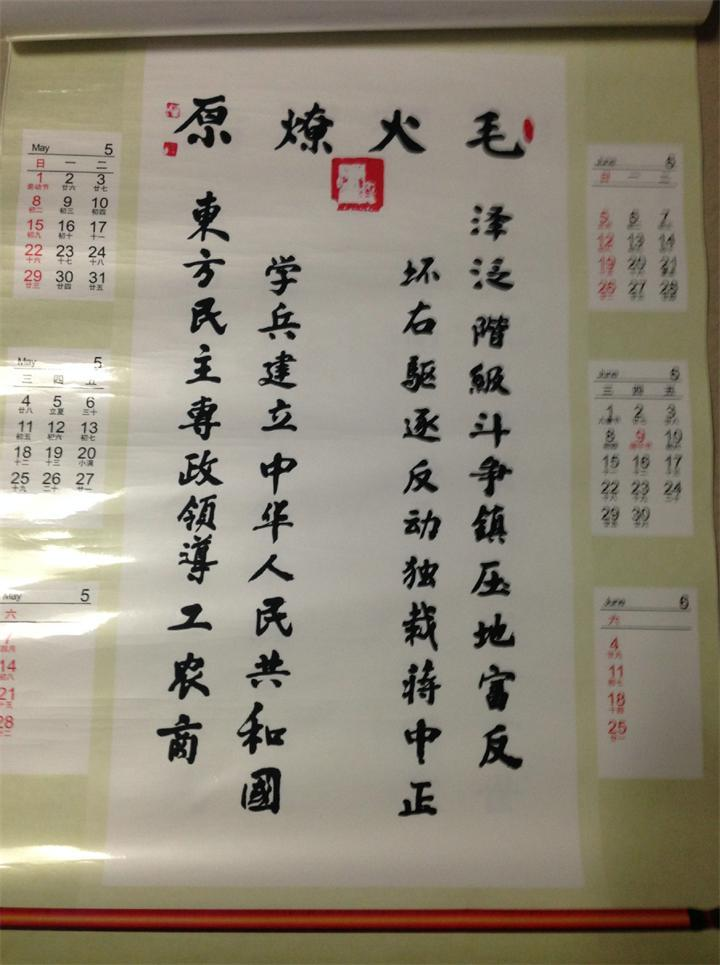 毛火燎原
泽泛階級斗争鎮压地富反
坏右驅逐反动独裁蒋中正
学兵建立中华人民共和國
東方民主專政領導工农商
May 5
日 一 二
1 2 3
劳动节 廿六 廿七
8 9 10
初二 初三 初四
15 16 17
初九 初十 十一
22 23 24
十六 十七 十八
29 30 31
廿三 廿四 廿五
May 5
三 四 五
4 5 6
廿八 立夏 三十
11 12 13
初五 初六 初七
18 19 20
十二 十三
25 26 27
十九 二十 廿一
May 5
六
7
14
21
28
June 6
日 一 二
5 6 7
12 13 14
19 20 21
26 27 28
June 6
三 四 五
1 2 3
8 9 10
15 16 17
22 23 24
29 30
June 6
六
4
11
18
25